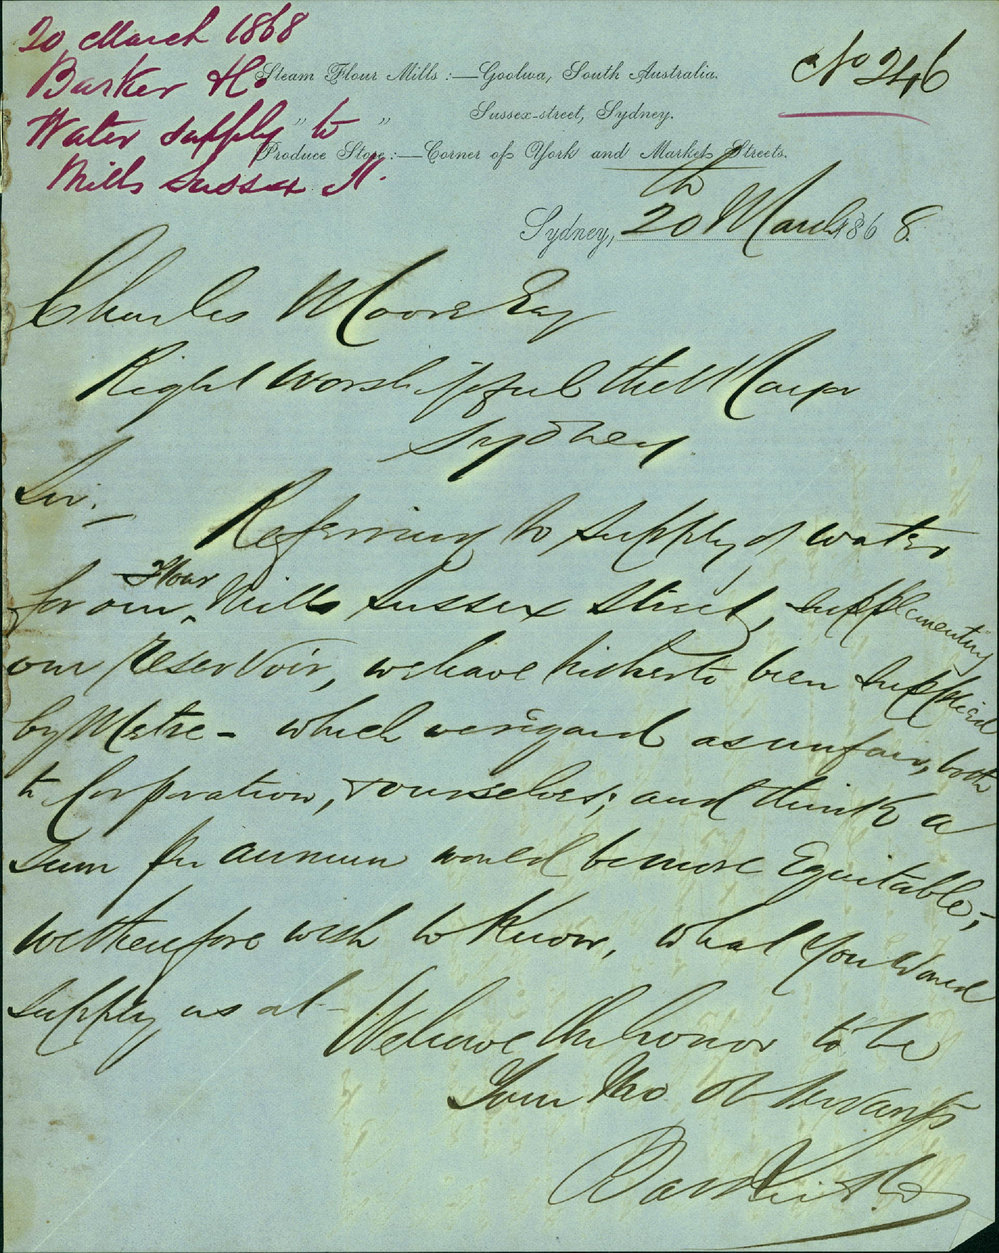 20 March 1868
Barker & Co
Water supply to
Mills Sussex St.
No 246
Steam Flour Mills :—Goolwa, South Australia.
" " Sussex-street, Sydney.
Produce Store :—Corner of York and Market Streets.
Sydney, 20th March 1868.
Charles Moore Esq
Right Worshipful the Mayor
Sydney
Sir:—
Referring to supply of water
for our Flour Mills Sussex Street, supplementing
our reservoir, we have hitherto been supplied
by Metre – which we regard as unfair, both
to Corporation, & ourselves; and think a
sum per annum would be more Equitable;
we therefore wish to Know, what you would
supply us at –
We have the honor to be
Your Mo Ob Servants
Barker & Co